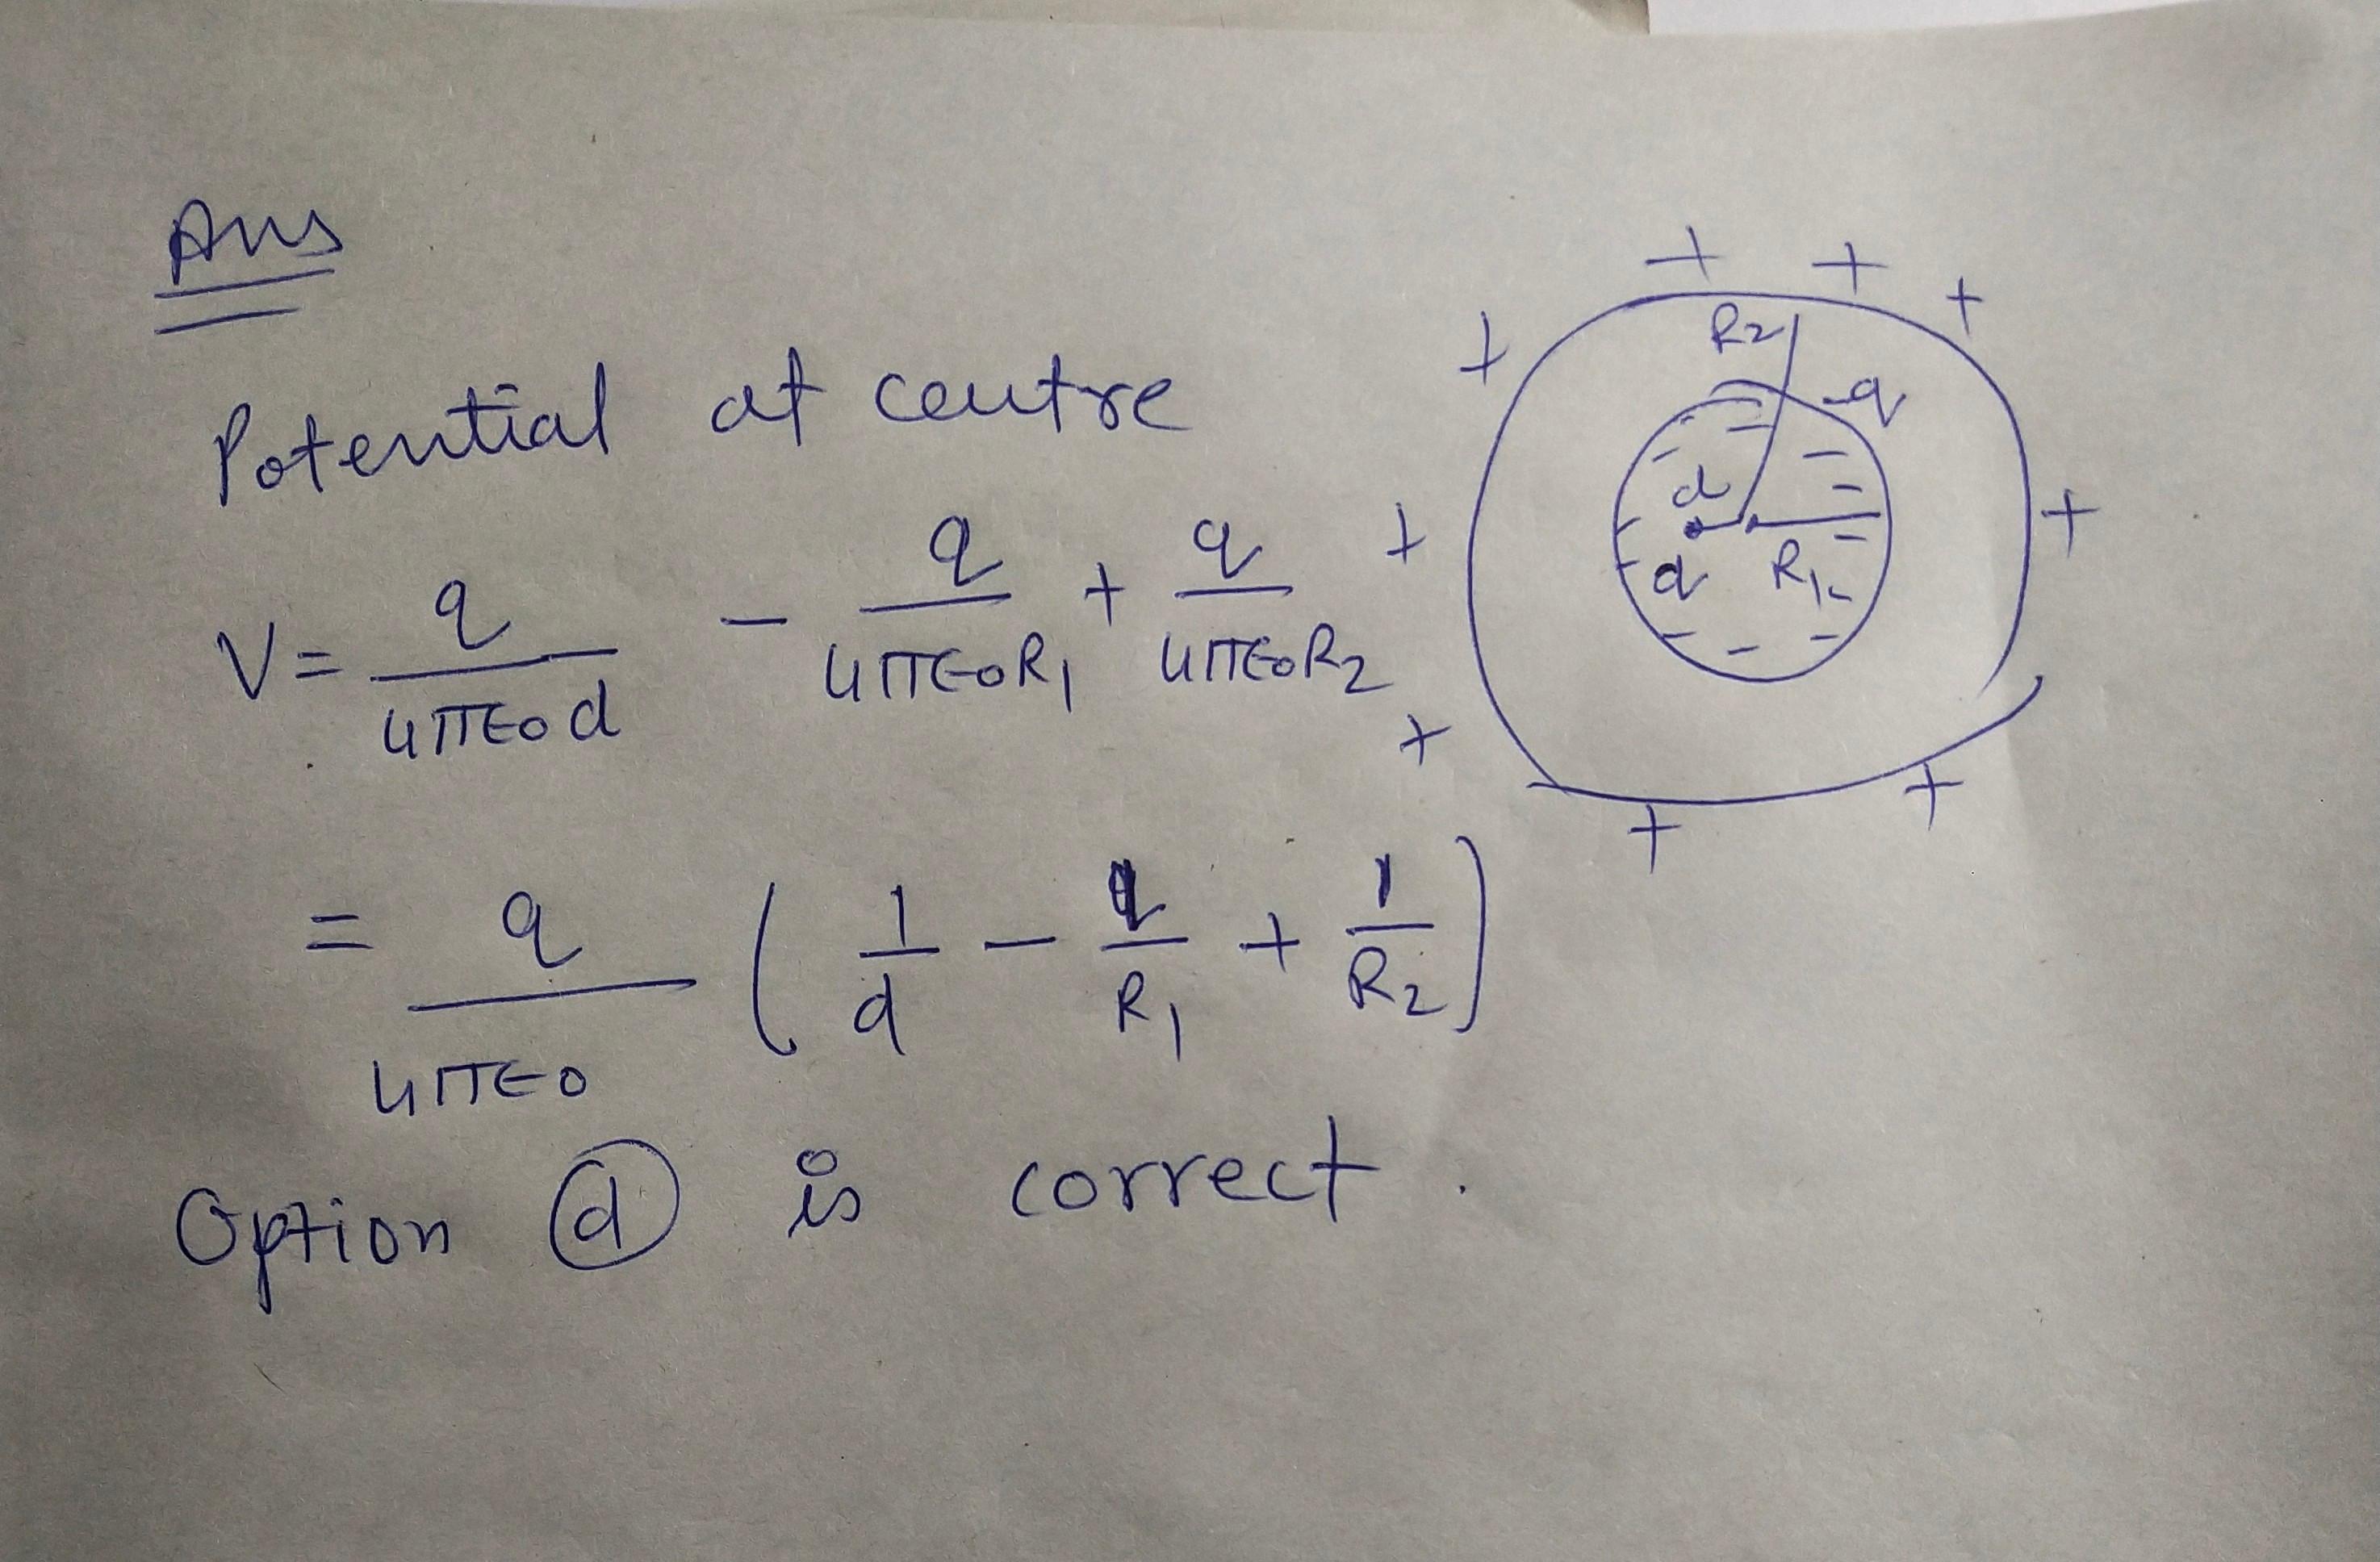 Ans
Potential at centre
V = q/4πε0d - q/4πε0R1 + q/4πε0R2
= q/4πε0 ( 1/d - 1/R1 + 1/R2 )
Option (d) is correct.
+ + + + + + + + + +
R2
-q
d
q R1